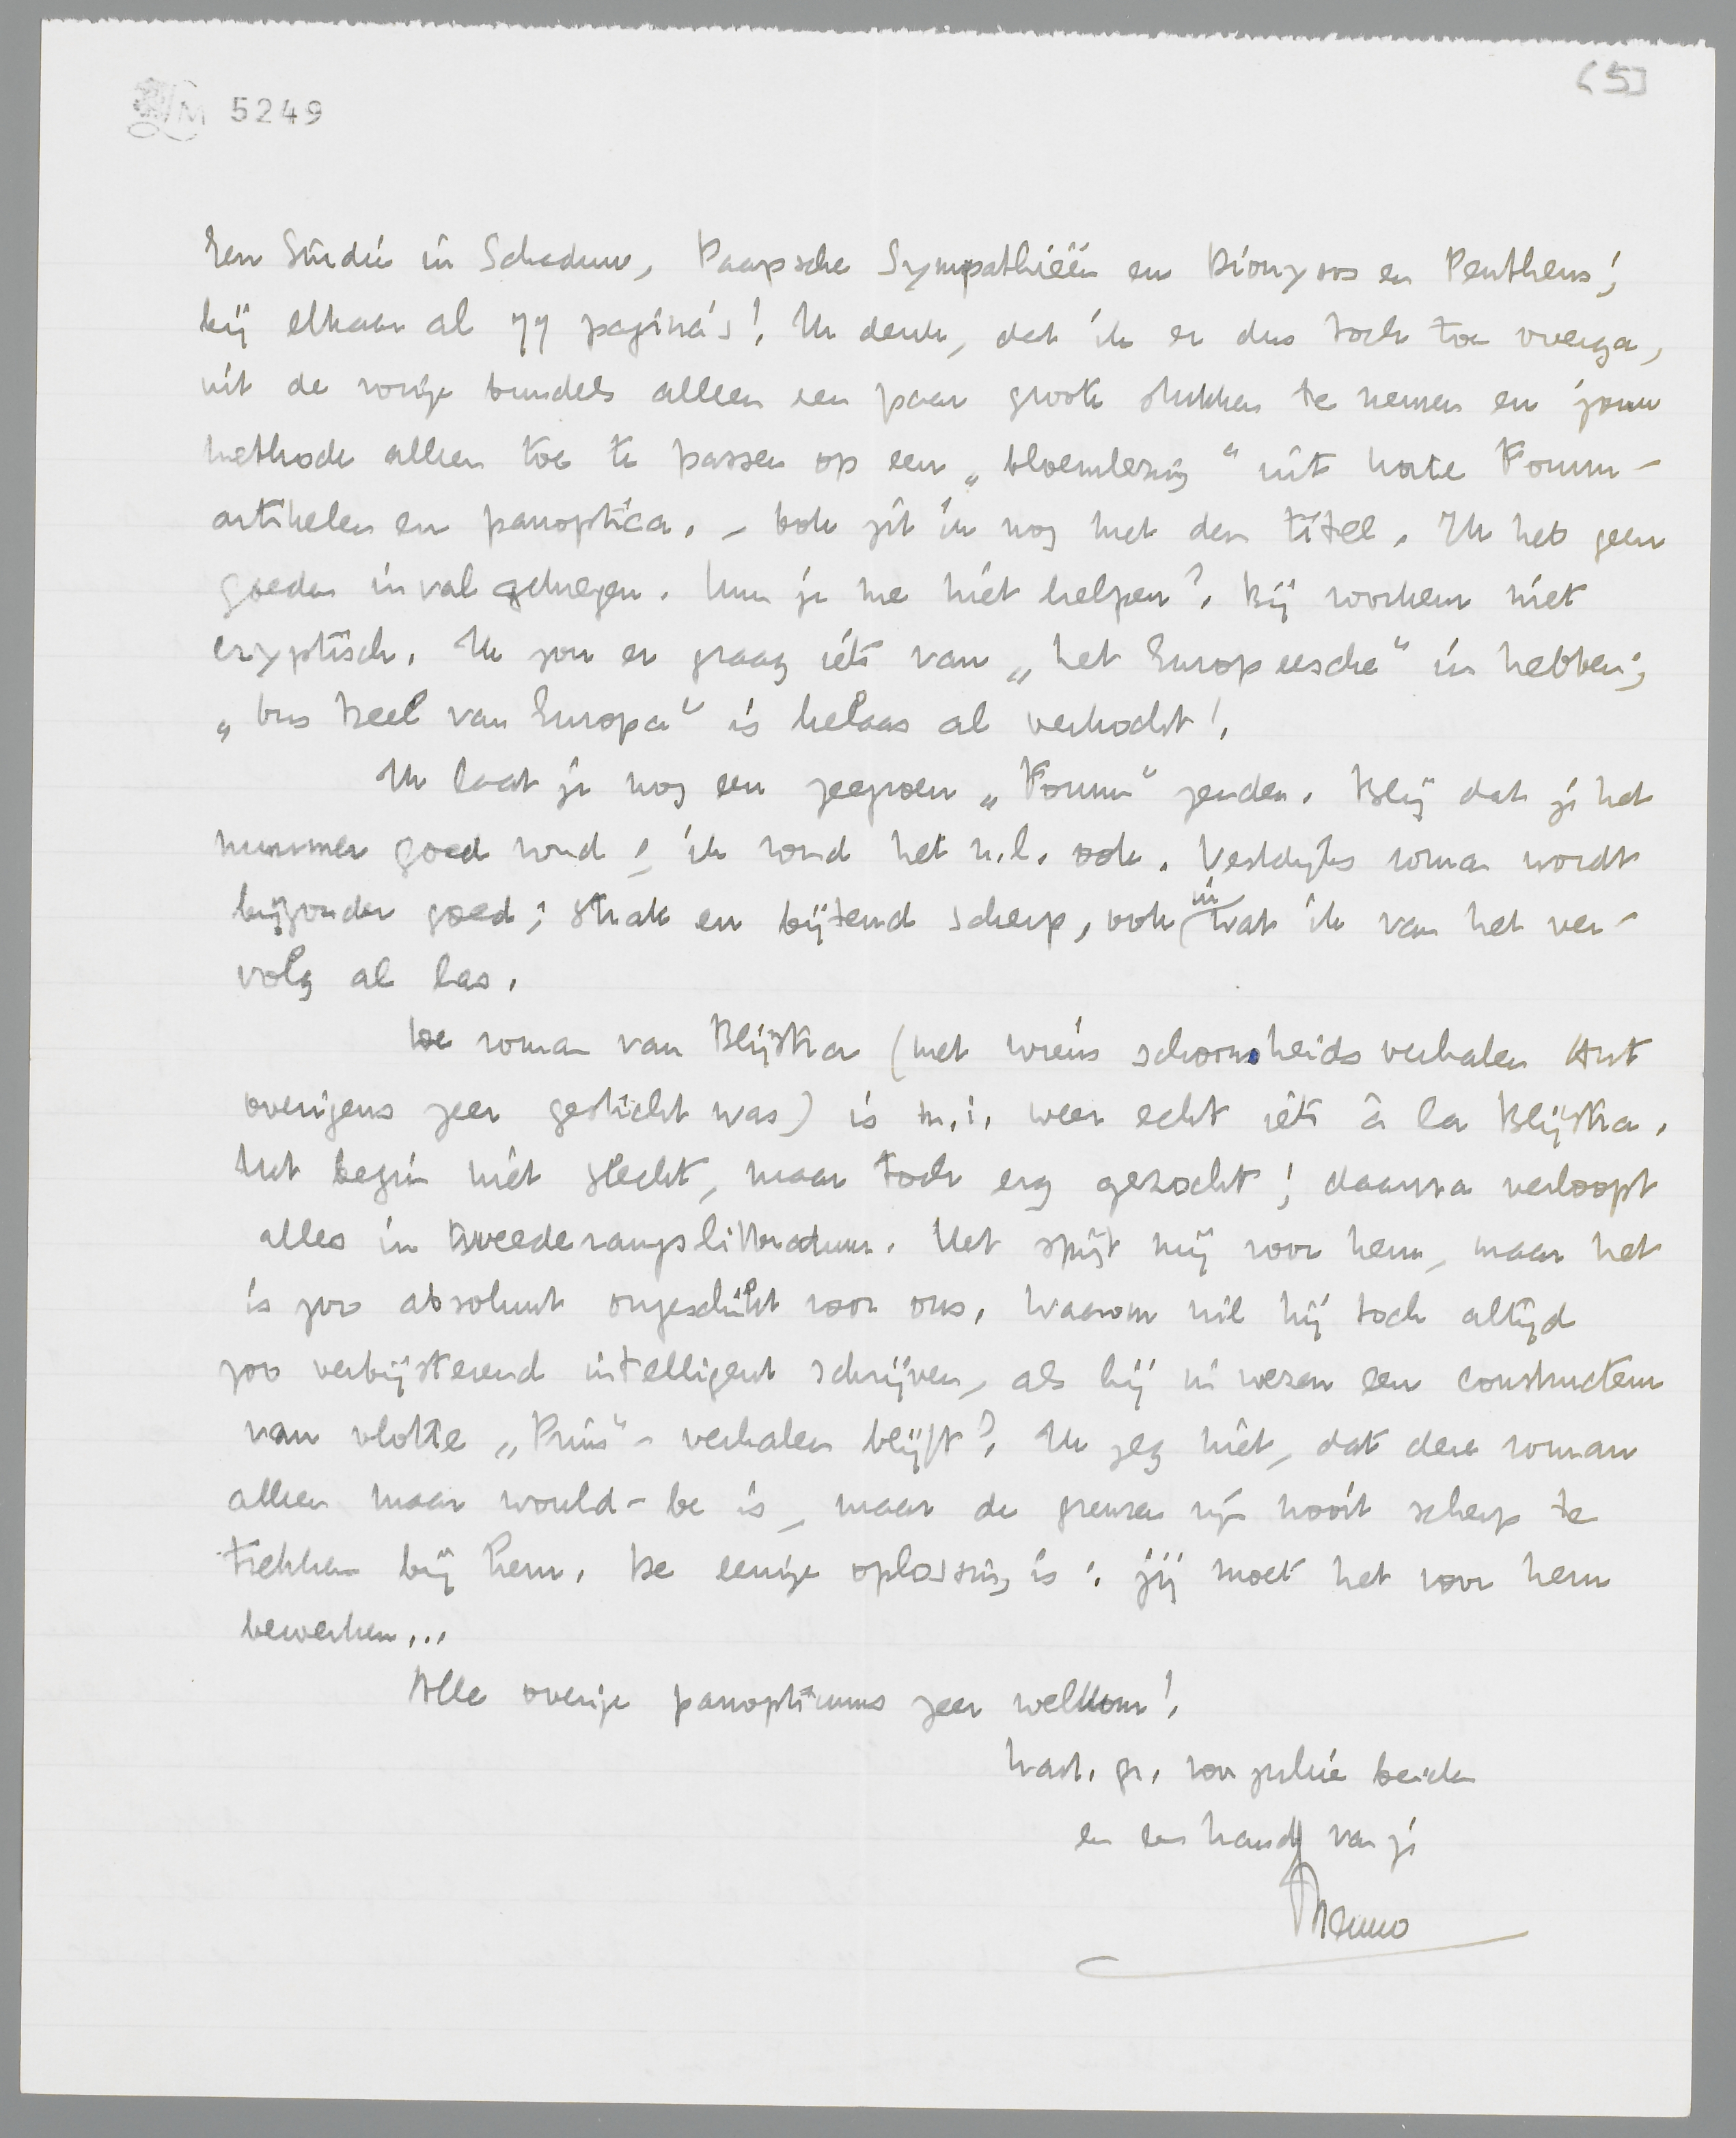 (5)
LM 5249
Een Studie in Schaduw, Paapsche Sympathieën en Dionysos en Pentheus;
bij elkaar al 77 pagina's! Ik denk, dat ik er dus toch toe overga,
uit de vorige bundels alleen een paar groote stukken te nemen en jouw
methode alleen toe te passen op een „bloemlezing" uit korte Forum-
artikelen en panoptica. - Ook zit ik nog met den titel. Ik heb geen
goeden inval gekregen. Kun je me niet helpen? Bij voorkeur niet
cryptisch. Ik zou er graag iets van „het Europeesche" in hebben;
„Ons Deel van Europa" is helaas al verkocht!
Ik laat je nog een zeegroen „Forum" zenden. Blij dat je het
nummer goed vond; ik vond het n.l. ook. Vestdijks roman wordt
bijzonder goed; strak en bijtend scherp, ook in wat ik van het ver-
volg al las.
De roman van Blijstra (met wiens schoonheidsverhalen Ant
overigens zeer gesticht was) is m.i. weer echt iets à la Blijstra.
Het begin niet slecht, maar toch erg gezocht; daarna verloopt
alles in tweederangslitteratuur. Het spijt mij voor hem, maar het
is zoo absoluut ongeschikt voor ons. Waarom wil hij toch altijd
zoo verbijsterend intelligent schrijven, als hij in wezen een constructeur
van vlotte „Prins"-verhalen blijft? Ik zeg niet, dat deze roman
alleen maar would-be is, maar de grenzen zijn nooit scherp te
trekken bij hem. De eenige oplossing is: jij moet het voor hem
bewerken...
Alle overige panopticums zeer welkom!
Hart. gr. voor jullie beiden
en een hand van je
Menno